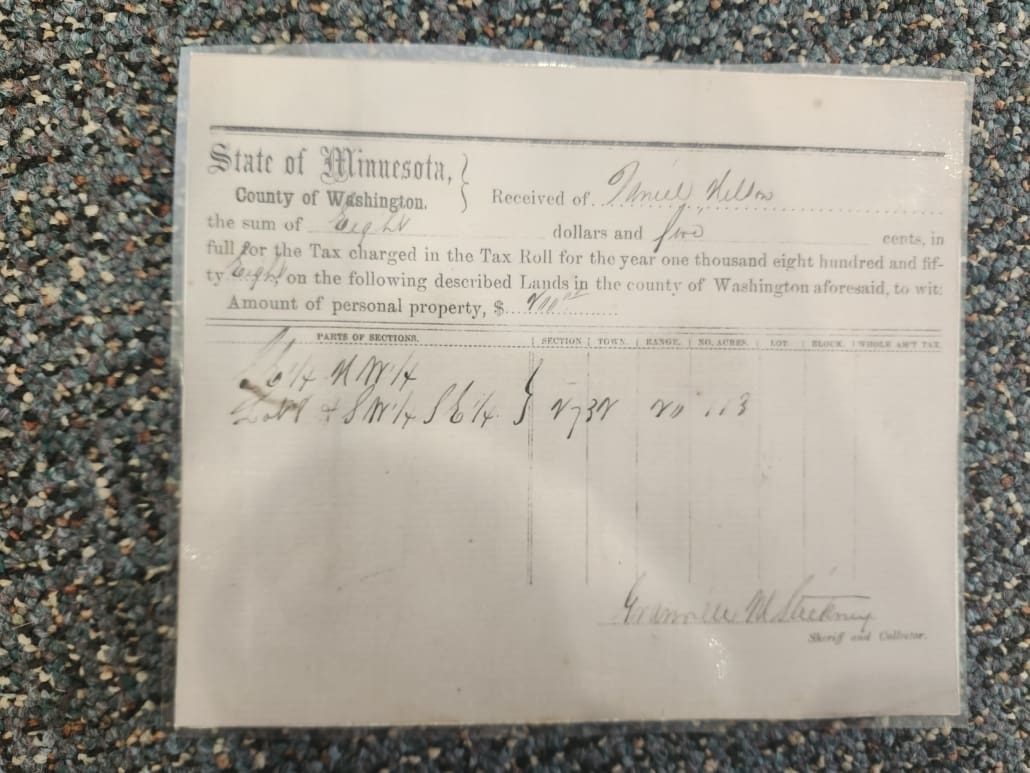 State of Minnesota,
County of Washington.
Received of Nelson
the sum of Eight dollars and five cents, in
full for the Tax charged in the Tax Roll for the year one thousand eight hundred and fif-
ty Eight, on the following described Lands in the county of Washington aforesaid, to wit:
Amount of personal property, $
PARTS OF SECTIONS. SECTION TOWN. RANGE. NO. ACRES. LOT. BLOCK. WHOLE AM'T TAX.
N W 1/4
& S W 1/4 S E 1/4 } 27 32 20 113
Sheriff and Collector.